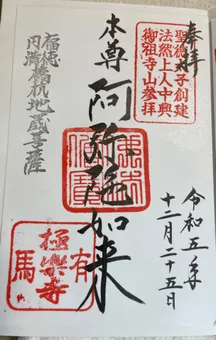 奉拝
聖徳太子創建
法然上人中興
御祖寺山参拝
令和五年
十二月二十五日
本尊 阿弥陀如来
福徳
円満
橋杭地蔵菩薩
有馬
極楽寺